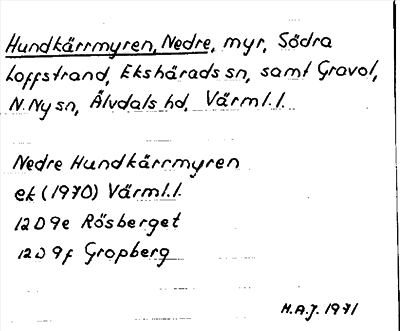 Hundkärrmyren, Nedre, myr, Södra
Loffstrand, Ekshärads sn, samt Gravol,
N. Ny sn, Älvdals hd, Värml. l.
Nedre Hundkärrmyren
ek (1970) Värml. l.
12 D 9e Rösberget
12 D 9f Gropberg
H.A.J. 1971